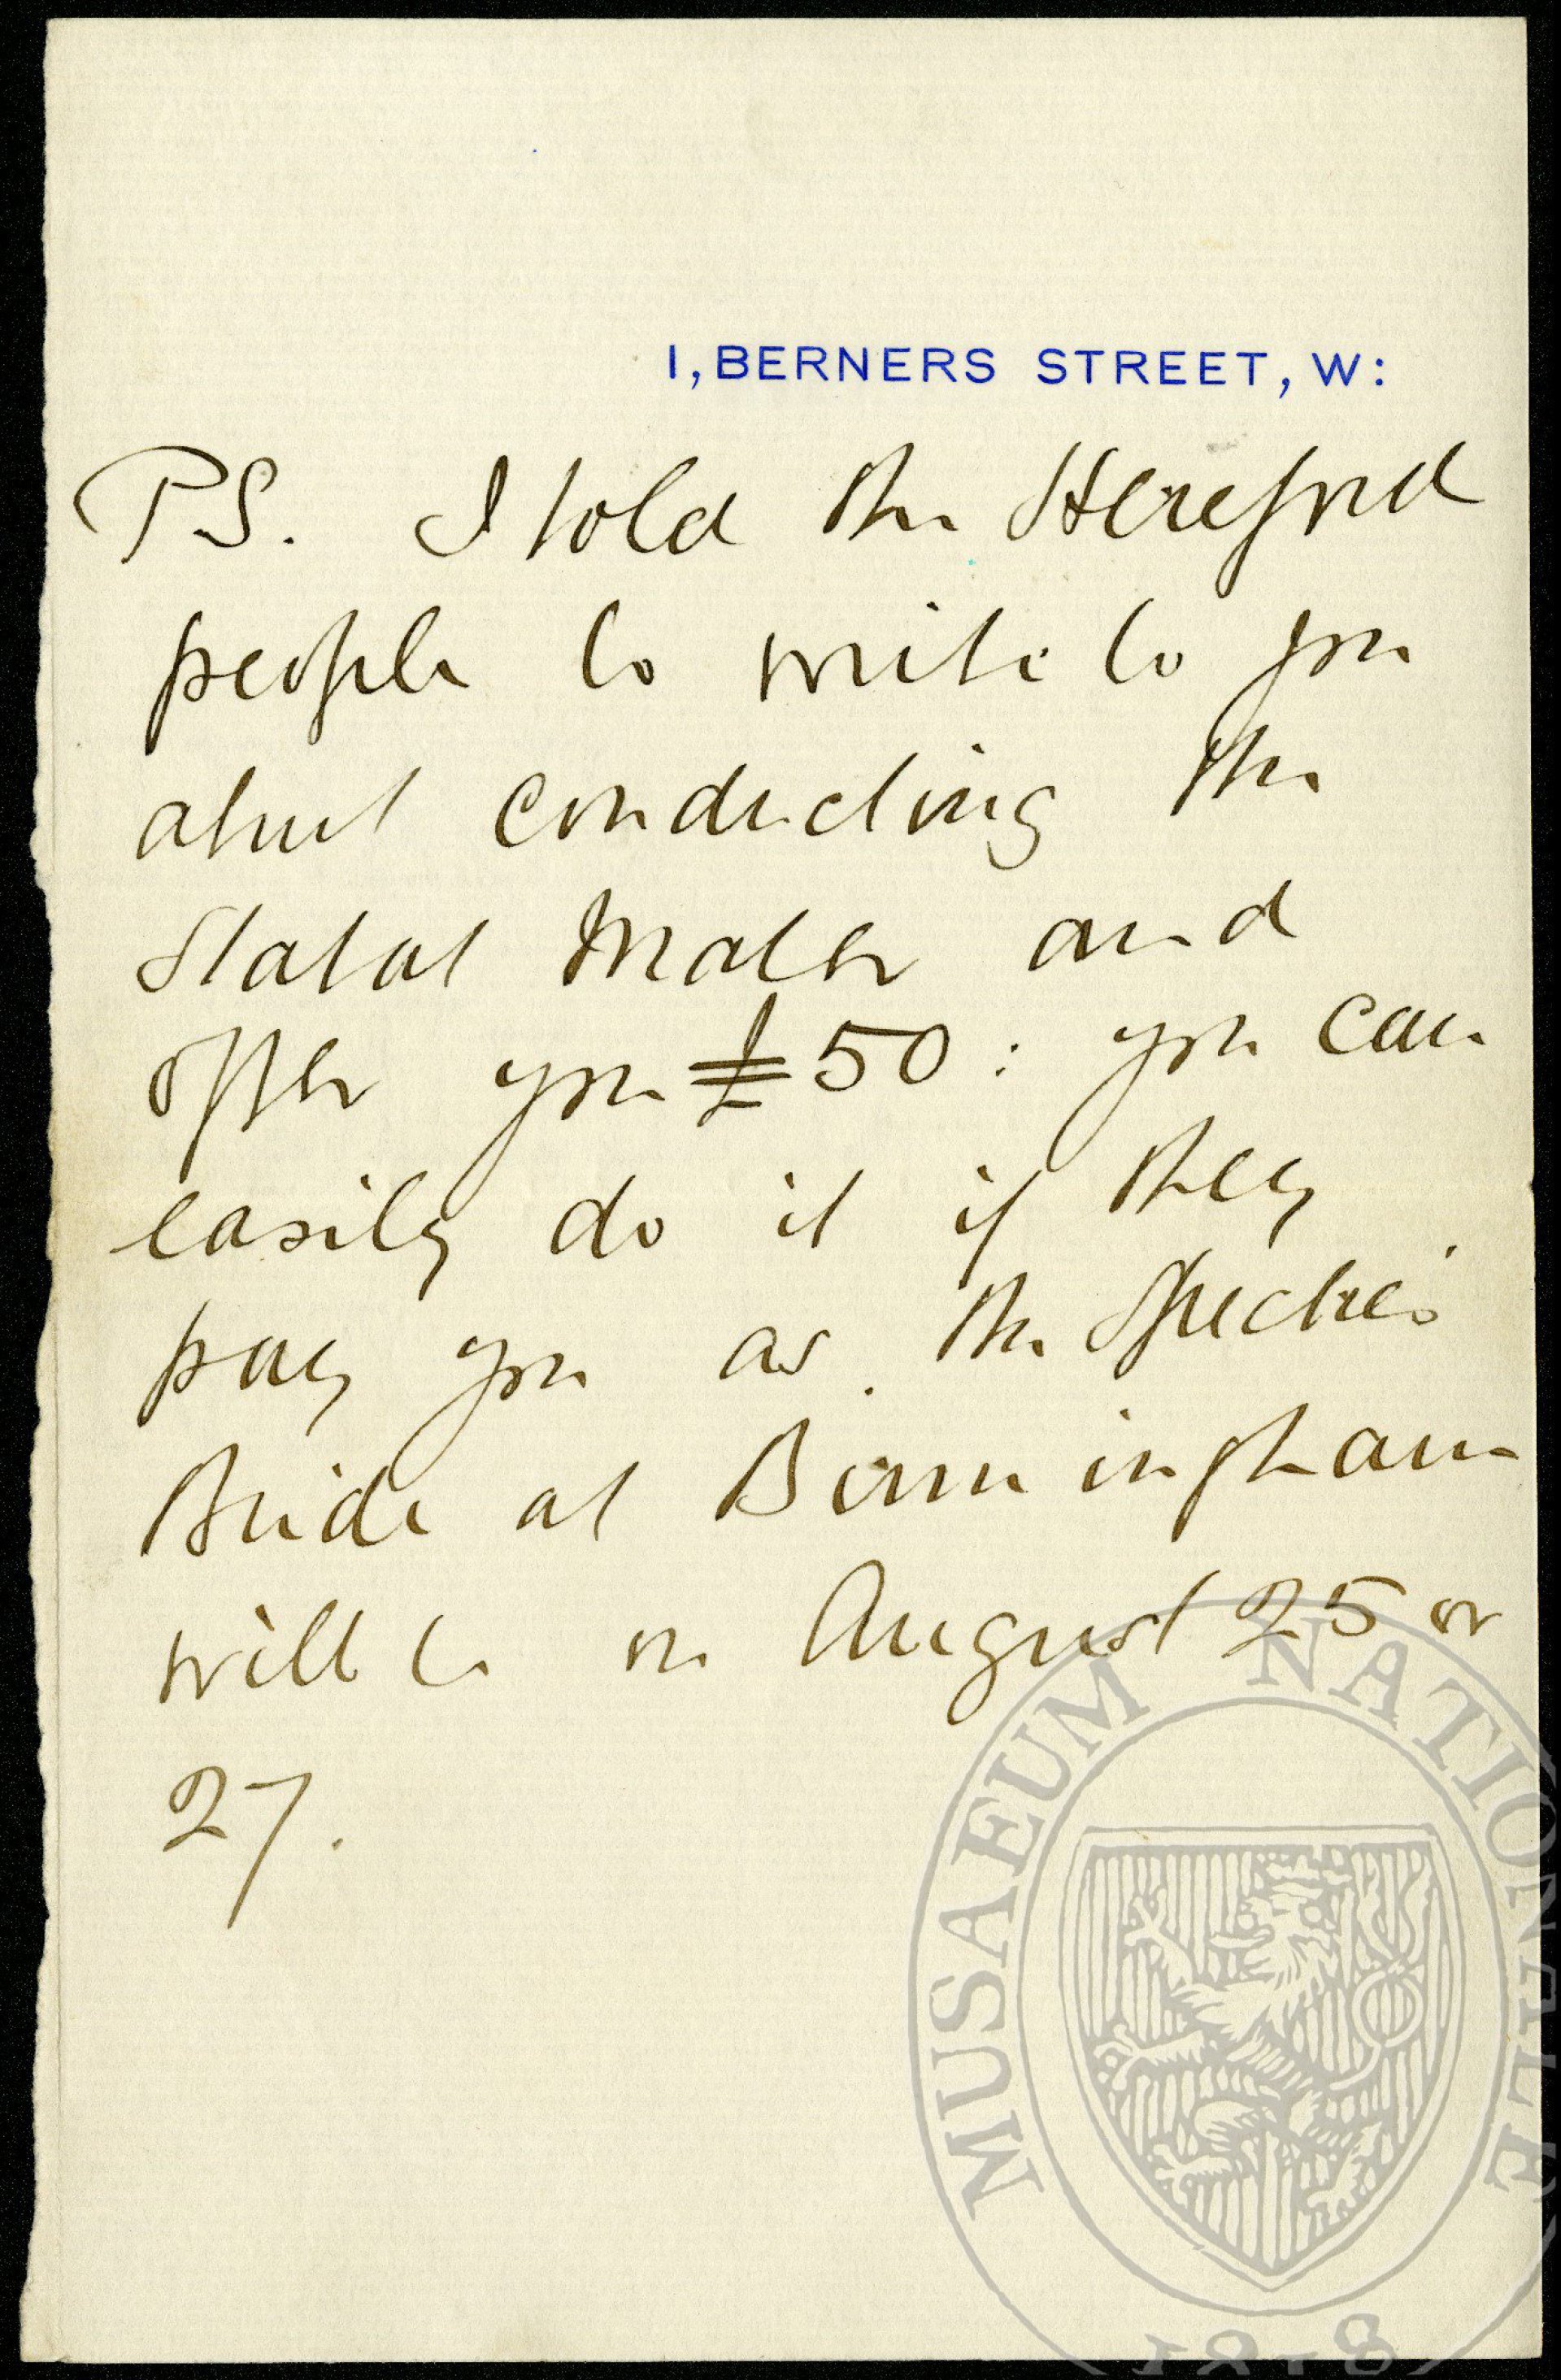 1, BERNERS STREET, W:
PS. I told the Hereford
people to write to you
about conducting the
Stabat Mater and
offer you £50: you can
easily do it if they
pay you as the Spectre's
Bride at Birmingham
will be on August 25 or
27.
MUSAEUM NATIONALE
1818